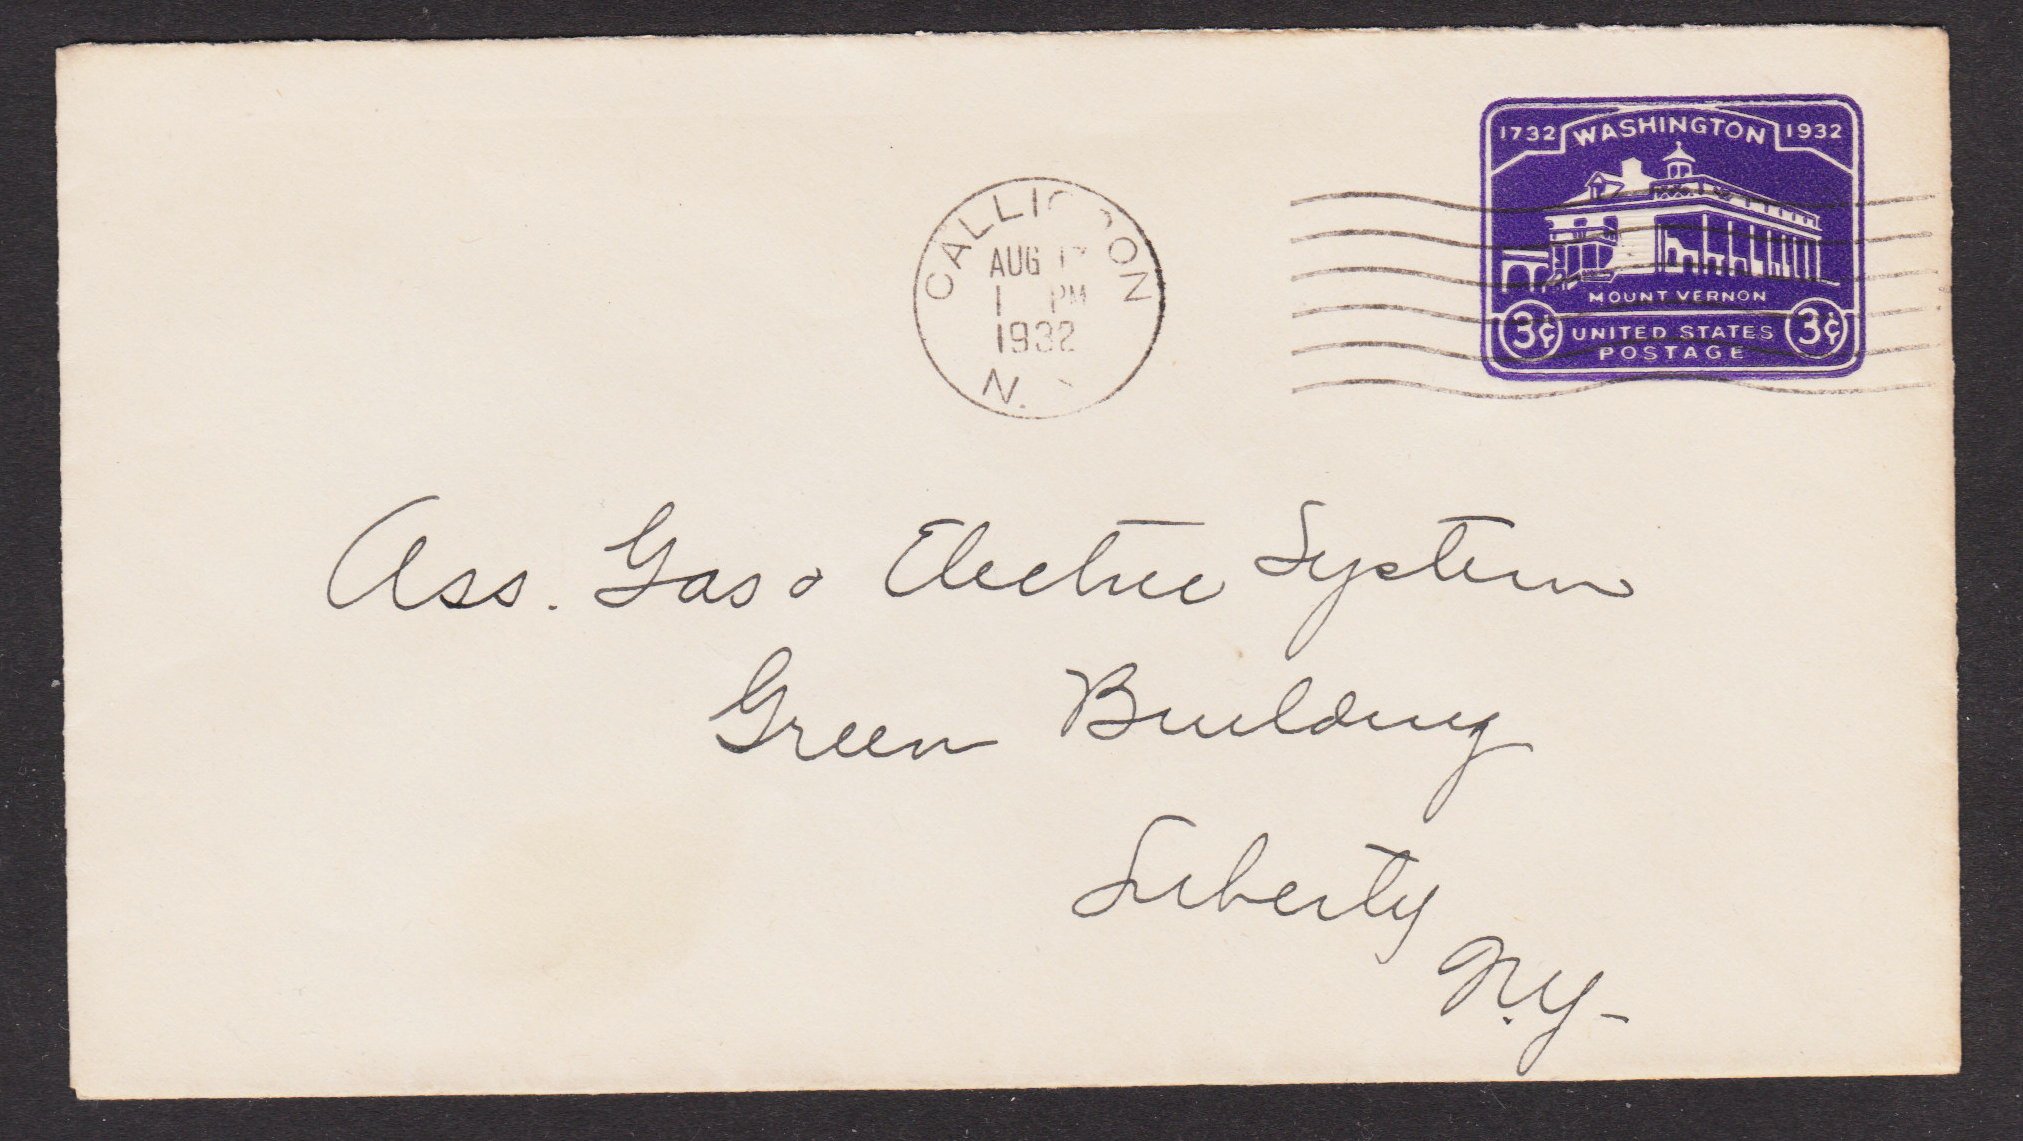 1732 WASHINGTON 1932
MOUNT VERNON
3¢ UNITED STATES 3¢
POSTAGE
AUG
1 PM
1932
N.
Ass. Gas & Electric System
Green Building
Liberty
N.Y-